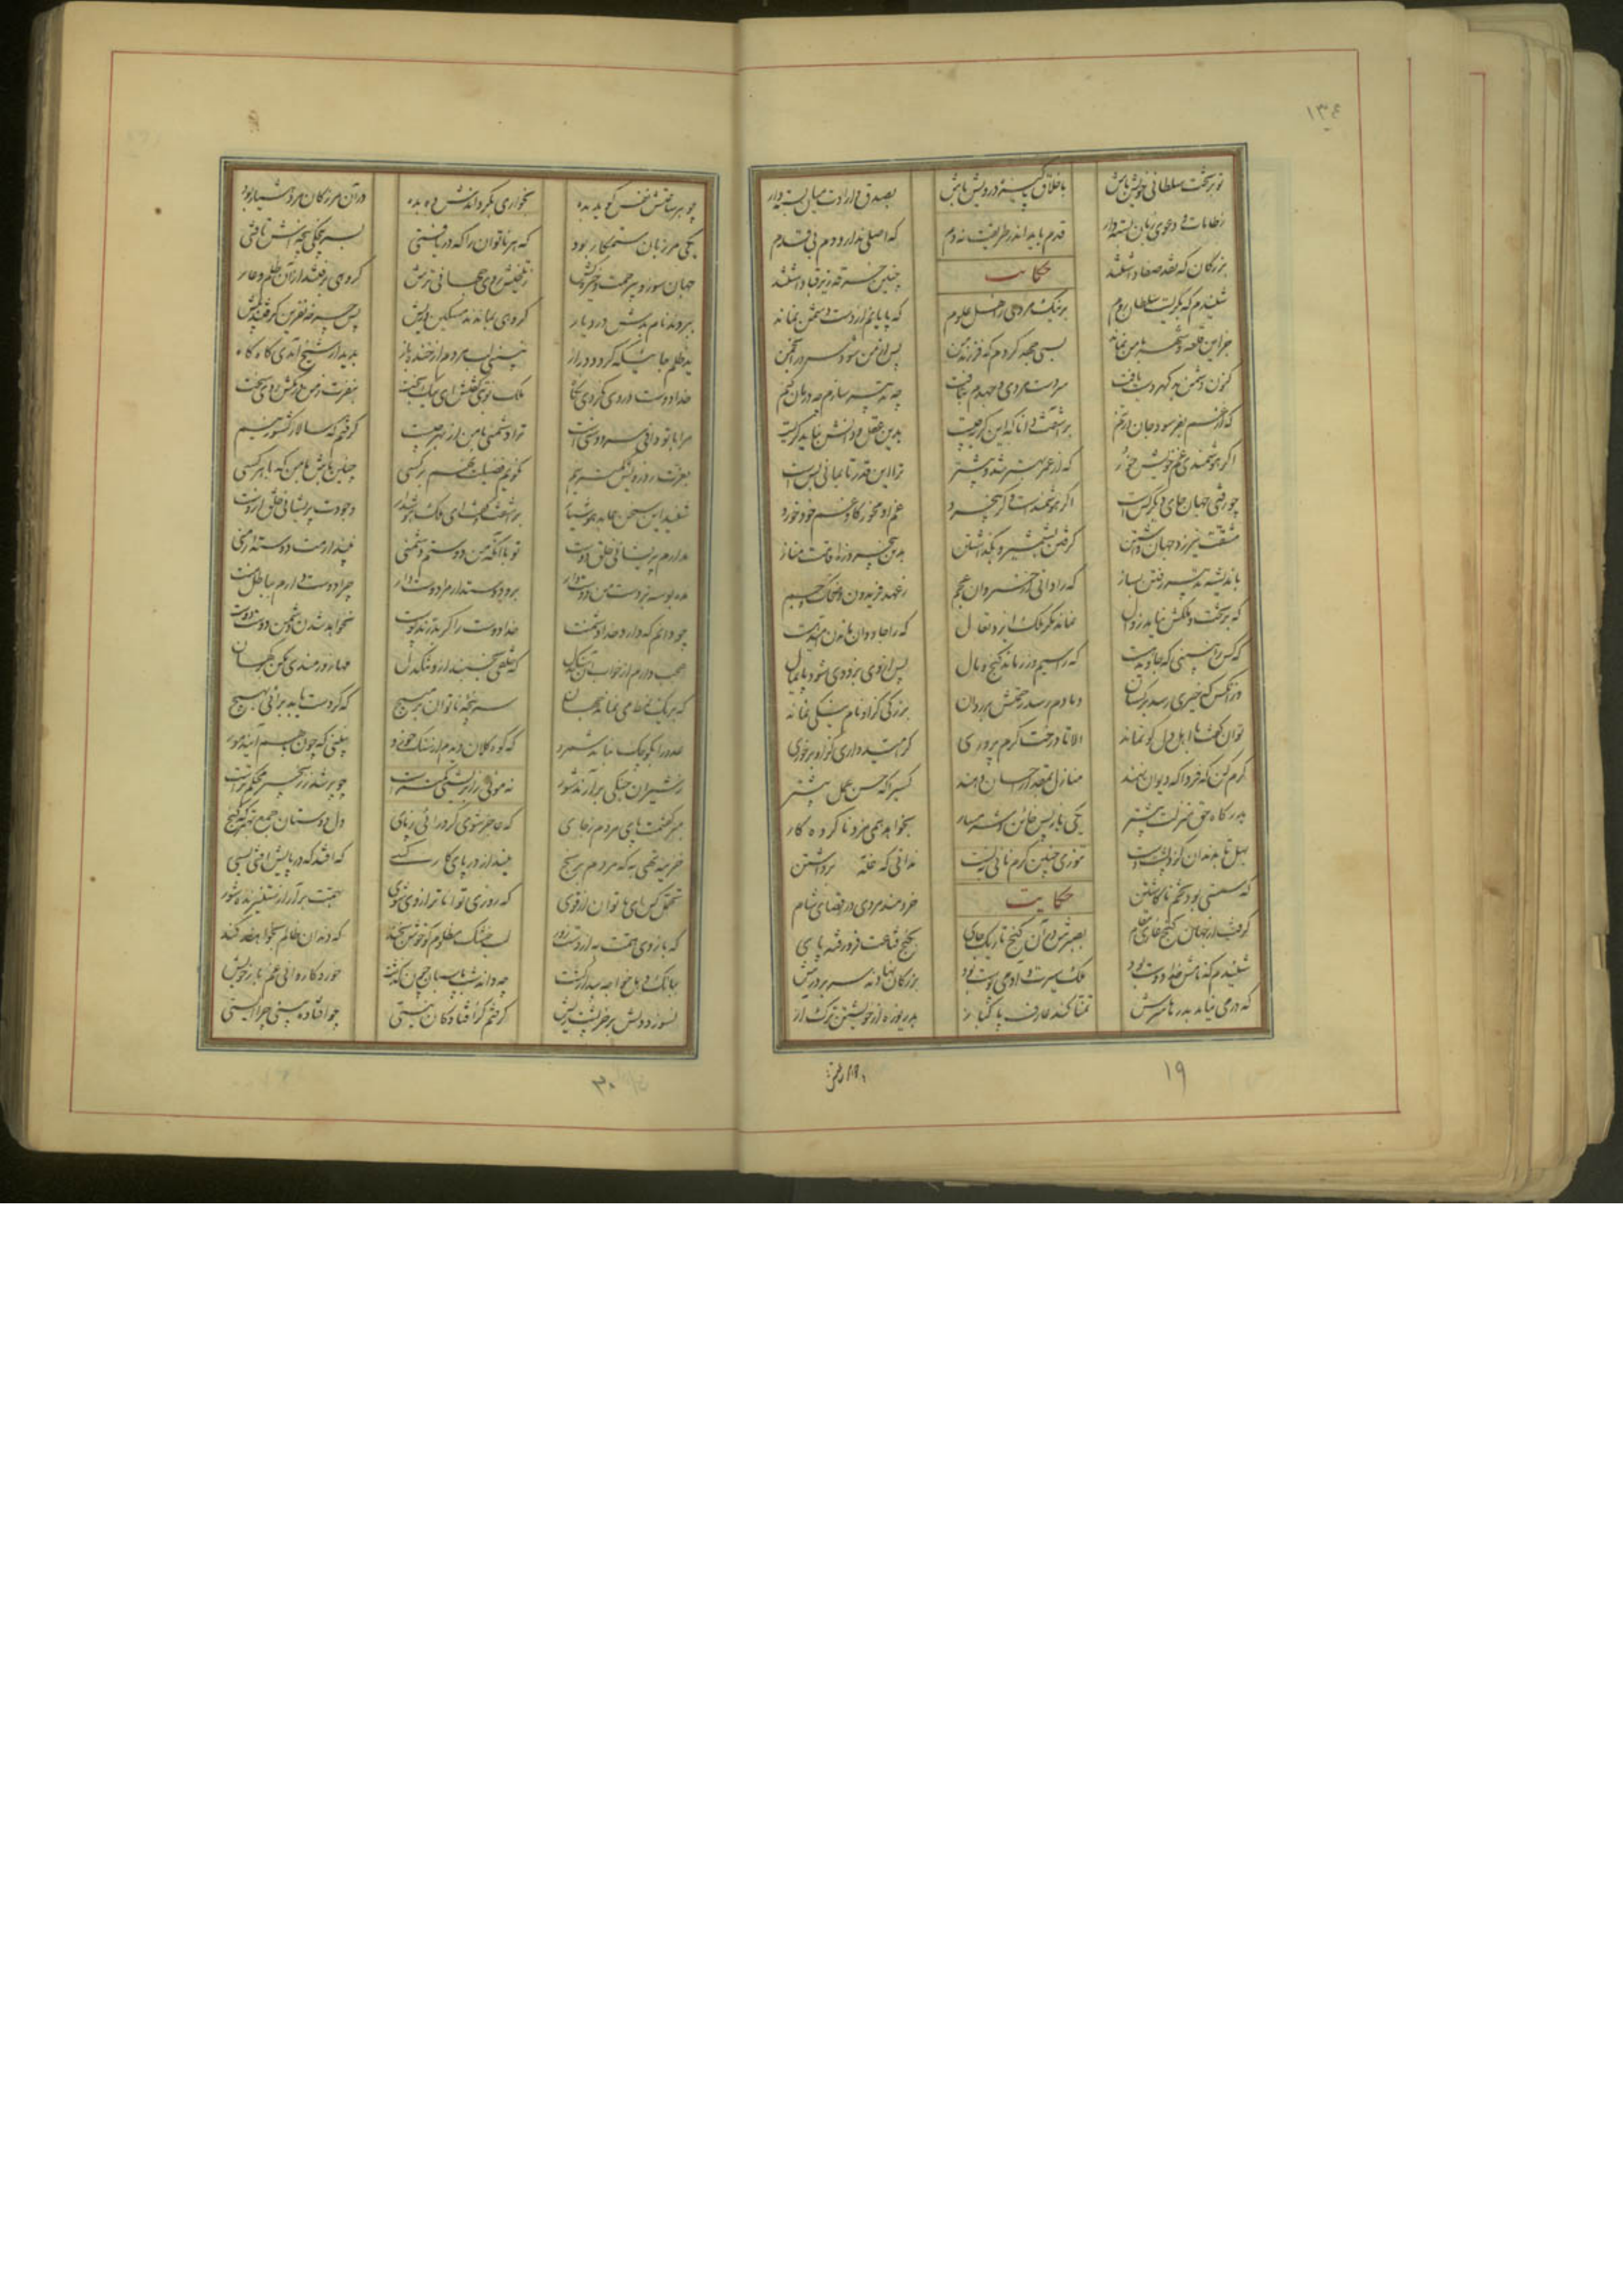 ۱۳٤
تو بر تخت سلطانی خویش باش
باخلاق پاکیزه درویش باش
بصدق و ارادت میان بسته دار
ز طامات و دعوی زبان بسته دار
قدم باید اندر طریقت نه دم
که اصلی ندارد دم بی قدم
بزرگان که نقد صفا داشتند
حکایت
چنین خرقه زیر قبا داشتند
شنیدم که بگریست سلطان روم
بر نیک مردی ز اهل علوم
که پایابم از دست دشمن نماند
جز این قلعه و شهر با من نماند
بسی جهد کردم که فرزند من
پس از من بود سرور انجمن
کنون دشمن بد گهر دست یافت
سر دست مردی و جهدم بتافت
چه تدبیر سازم چه درمان کنم
که از غم بفرسود جان در تنم
برآشفت دانا که این گریه چیست
بدین عقل و دانش بباید گریست
اگر هوشمندی غم خویش خور
که از عمر بهتر شد و بیشتر
ترا این قدر تا بمانی بس است
چو رفتی جهان جای دیگر کس است
اگر هوشمندست و گر بیخرد
غم او مخور کاو غم خود خورد
مشقت نیرزد جهان داشتن
گرفتن بشمشیر و بگذاشتن
بدین پنجروزه اقامت مناز
باندیشه تدبیر رفتن بساز
که را دانی از خسروان عجم
ز عهد فریدون و ضحاک و جم
که بر تخت و ملکش نیامد زوال
نماند مگر ملک ایزد تعال
که را جاودان ماندن امید هست
که کس را نبینی که جاوید هست
که را سیم و زر ماند و گنج و مال
پس از وی بزودی شود پایمال
وز آنکس که خیری رسد بر کسان
دمادم رسد رحمتش بر روان
بزرگی کزو نام نیکی نماند
توان گفت با اهل دل کو نماند
الا تا درخت کرم پروری
گر امیدواری کزو بر خوری
کرم کن که فردا که دیوان نهند
منازل بمقدار احسان دهند
کسی را که حسن عمل بیشتر
بدرگاه حق منزلت پیشتر
یکی باز پس خائن و شرمسار
بخواهد همی مزد ناکرده کار
بهل تا بدندان گزد پشت دست
تنوری چنین گرم نانی نبست
ندانی که غله برداشتن
که سستی بود تخم ناکاشتن
حکایت
خردمند مردی در اقصای شام
گرفت از جهان کنج غاری مقام
بصبرش در آن کنج تاریک جای
بگنج قناعت فرو رفته پای
شنیدم که نامش خدا دوست بود
ملک سیرت و آدمی پوست بود
بزرگان نهادند سر بر درش
که در می نیامد بدرها سرش
تمنا کند عارف پاکباز
بدریوزه از خویشتن ترک آز
۱۹
چو هر ساعتش نفس گوید بده
بخواری بگرداندش ده بده
در آن مرز کان مرد هشیار بود
یکی مرزبان ستمکار بود
که هر ناتوان را که دریافتی
بسر پنجگی پنجه‌اش تافتی
جهان سوز و بیرحمت و خیره کش
ز تلخیش روی جهانی ترش
گروهی برفتند از آن ظلم و عار
ببردند نام بدش در دیار
گروهی بماندند مسکین و ریش
پس چرخه نفرین گرفتند پیش
ید ظلم جائیکه گردد دراز
نبینی لب مردم از خنده باز
بدیدار شیخ آمدی گاه گاه
خدا دوست در وی نکردی نگاه
ملک نوبتی گفتش ای نیکبخت
بنفرت ز من در مکش روی سخت
مرا با تو دانی سر دوستی است
ترا دشمنی با من از بهر چیست
گرفتم که سالار کشور نیم
بعزت ز درویش کمتر نیم
نگویم فضیلت نهم بر کسی
چنان باش با من که با هر کسی
شنید این سخن عابد هوشیار
برآشفت و گفت ای ملک هوش دار
وجودت پریشانی خلق از اوست
ندارم پریشانی خلق دوست
تو با آنکه من دوستم دشمنی
نپندارمت دوستدار منی
مده بوسه بر دست من دوست وار
برو دوستداران مرا دوست دار
چرا دوست دارم بباطل منت
چو دانم که دارد خدا دشمنت
خدا دوست را گر بدرند پوست
نخواهد شدن دشمن دوست دوست
عجب دارم از خواب آن سنگدل
که خلقی بخسبند از او تنگدل
مها زورمندی مکن بر کهان
که بر یک نمط می نماند جهان
سر پنجه ناتوان بر مپیچ
که گر دست یابد برآئی بهیچ
عدو را بکوچک نباید شمرد
که کوه کلان دیدم از سنگ خرد
نبینی که چون با هم آیند مور
ز شیران جنگی برآرند شور
نه موئی ز ابریشمی کمتر است
چو پر شد ز زنجیر محکمتر است
مبر گفتمت پای مردم ز جای
که عاجز شوی گر در آئی ز پای
دل دوستان جمع بهتر که گنج
خزینه تهی به که مردم برنج
مینداز در پای کار کسی
که افتد که در پایش افتی بسی
تحمل کن ای ناتوان از قوی
که روزی تواناتر از وی شوی
بهمت برآر از ستیزنده شور
که بازوی همت به از دست زور
لب خشک مظلوم گو خوش بخند
که دندان ظالم بخواهند کند
ببانگ دهل خواجه بیدار گشت
چه داند شب پاسبان چون گذشت
خورد کاروانی غم بار خویش
نسوزد دلش بر خر پشت ریش
گرفتم کز افتادگان نیستی
چو افتاده بینی چرا ایستی
۲۰